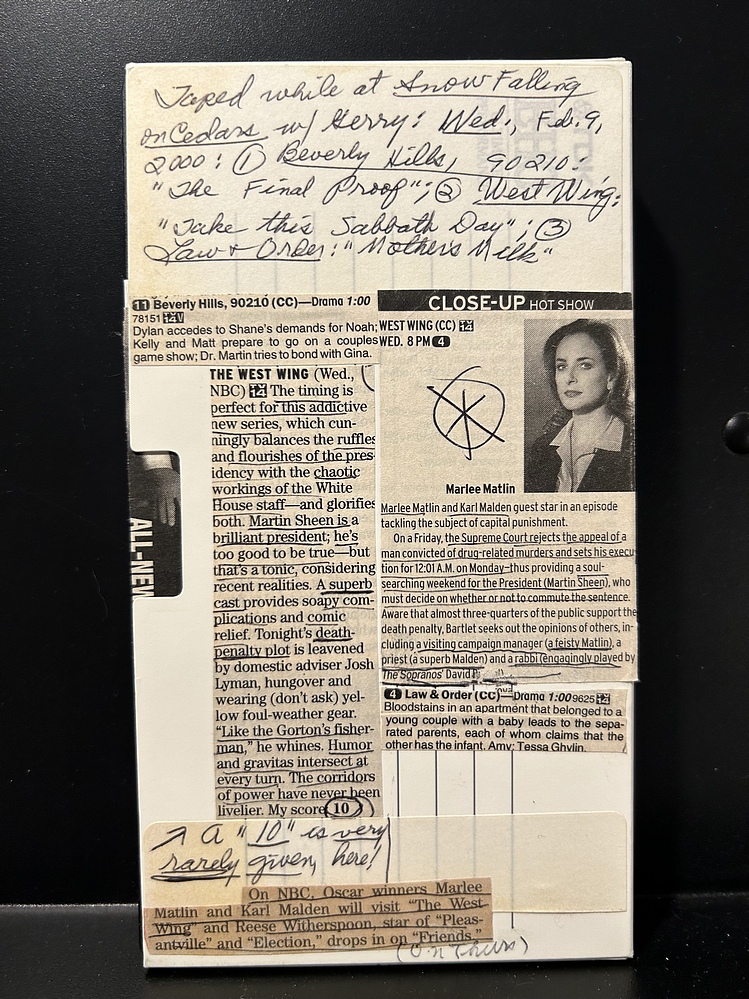 Taped while at Snow Falling
on Cedars w/ Gerry: Wed., Feb. 9,
2000: ① Beverly Hills, 90210:
"The Final Proof"; ② West Wing:
"Take this Sabbath Day"; ③
Law & Order: "Mother's Milk"
11 Beverly Hills, 90210 (CC)—Drama 1:00
78151 14 V
Dylan accedes to Shane's demands for Noah;
Kelly and Matt prepare to go on a couples
game show; Dr. Martin tries to bond with Gina.
THE WEST WING (Wed.,
NBC) 14 The timing is
perfect for this addictive
new series, which cun-
ningly balances the ruffles
and flourishes of the pres-
idency with the chaotic
workings of the White
House staff—and glorifies
both. Martin Sheen is a
brilliant president; he's
too good to be true—but
that's a tonic, considering
recent realities. A superb
cast provides soapy com-
plications and comic
relief. Tonight's death-
penalty plot is leavened
by domestic adviser Josh
Lyman, hungover and
wearing (don't ask) yel-
low foul-weather gear.
"Like the Gorton's fisher-
man," he whines. Humor
and gravitas intersect at
every turn. The corridors
of power have never been
livelier. My score: 10
CLOSE-UP HOT SHOW
WEST WING (CC) 14
WED. 8 PM 4
Marlee Matlin
Marlee Matlin and Karl Malden guest star in an episode
tackling the subject of capital punishment.
On a Friday, the Supreme Court rejects the appeal of a
man convicted of drug-related murders and sets his execu-
tion for 12:01 A.M. on Monday—thus providing a soul-
searching weekend for the President (Martin Sheen), who
must decide on whether or not to commute the sentence.
Aware that almost three-quarters of the public support the
death penalty, Bartlet seeks out the opinions of others, in-
cluding a visiting campaign manager (a feisty Matlin), a
priest (a superb Malden) and a rabbi (engagingly played by
The Sopranos' David
4 Law & Order (CC)—Drama 1:00 9625 14
Bloodstains in an apartment that belonged to a
young couple with a baby leads to the sepa-
rated parents, each of whom claims that the
other has the infant. Amy: Tessa Ghylin.
ALL-NEW
↗ A "10" is very
rarely given, here!
On NBC, Oscar winners Marlee
Matlin and Karl Malden will visit "The West
Wing" and Reese Witherspoon, star of "Pleas-
antville" and "Election," drops in on "Friends."
(on Thurs)